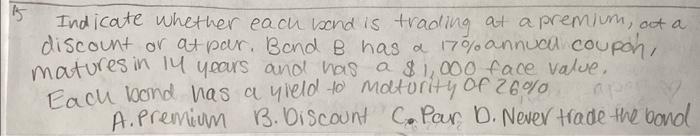 15 Indicate whether each bond is trading at a premium, at a
discount or at par. Bond B has a 17% annual coupon,
matures in 14 years and has a $1,000 face value.
Each bond has a yield to maturity of 26%.
A. Premium B. Discount C. Par D. Never trade the bond